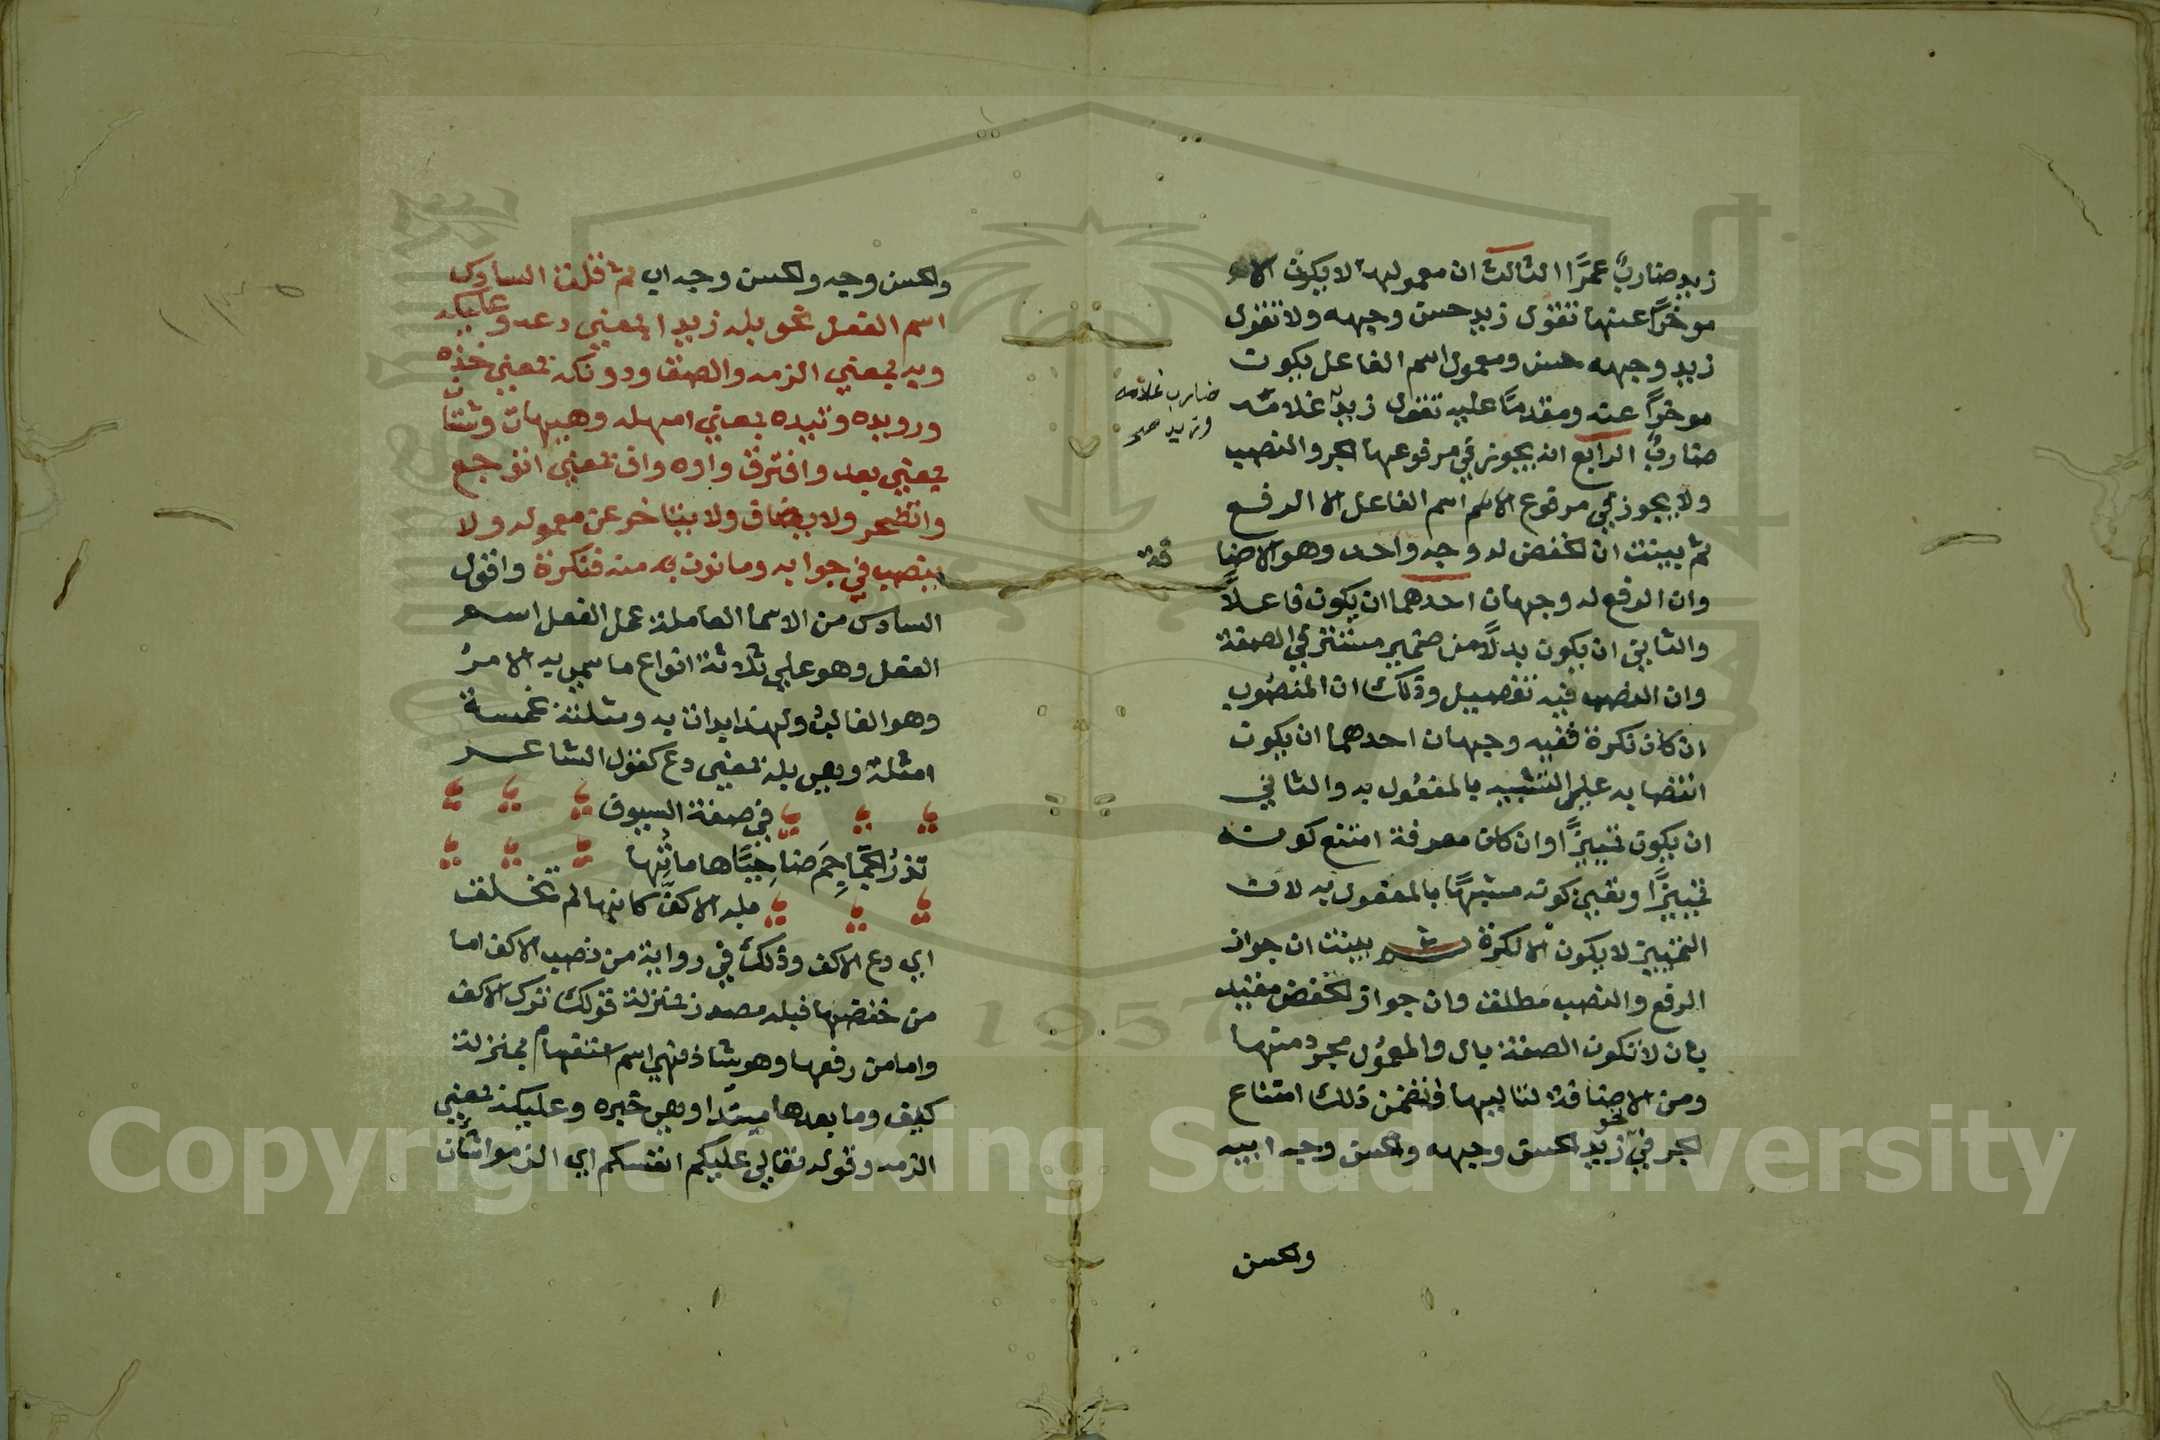 زيد ضاربٌ عمرًا الثالث ان معمولها لا يكون الا
موخرًا عنها تقول زيد حسن وجهه ولا تقول
زيد وجهه حسن ومعمول اسم الفاعل يكون
موخرًا عنه ومقدمًا عليه تقول زيدٌ غلامَه
ضاربٌ الرابع انه يجوز في مرفوعها الجر والنصب
ولا يجوز في مرفوع الاسم اسم الفاعل الا الرفع
ثم بينت ان الخفض له وجه واحد وهو الاضا
فة
وان الرفع له وجهان احدهما ان يكون فاعلاً
والثاني ان يكون بدلاً من ضمير مستتر في الصفة
وان النصب فيه تفصيل وذلك ان المنصوب
ان كان نكرة ففيه وجهان احدهما ان يكون
انتصابه على التشبيه بالمفعول به والثاني
ان يكون تمييزًا وان كان معرفة امتنع كونه
تمييزًا وتعين كونه مشبهًا بالمفعول به لان
التمييز لا يكون الا نكرة ثم بينت ان جواز
الرفع والنصب مطلق وان جواز الخفض مقيد
بان لا تكون الصفة بال والمعمول مجرد منها
ومن الاضافة لتاليها وتضمن ذلك امتناع
الجر في نحو زيد الحسن وجهه والحسن وجه ابيه
والحسن
ضارب غلامه
وزيد صح
والحسن وجه والحسن وجه اب ثم قلت السادس
اسم الفعل نحو بله زيدا بمعني دعه وعليكه
وبه بمعني الزمه والصق ودونكه بمعني خذه
ورويده وتيده بمعني امهله وهيهات وشتان
بمعني بعد وافترق واوه واف بمعني اتوجع
واتضجر ولا يضاف ولا يتاخر عن معموله ولا
ينصب في جوابه وما نون منه فنكرة واقول
السادس من الاسما العاملة عمل الفعل اسم
الفعل وهو علي ثلاثة انواع ما سمي به الامرُ
وهو الغالب ولهذا بدات به ومثلته بخمسة
امثلة وهي بله بمعني دع كقول الشاعر
في صفة السيوف
تذرُ الجَمَاجِمَ ضاحِيًا هاماتُها
بله الاكفَّ كانها لم تخلق
اي دع الاكف وذلك في رواية من نصب الاكف اما
من خفضها فبله مصدر بمنزلة قولك ترك الاكف
واما من رفعها وهو شاذ فهي اسم استفهام بمنزلة
كيف وما بعدها مبتدا وهي خبره وعليكه بمعني
الزمه وقوله تعالي عليكم انفسكم اي الزموا شان
Copyright © King Saud University
1957